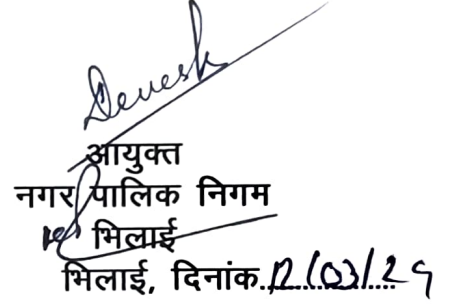 Devesh
आयुक्त
नगर पालिक निगम
भिलाई
भिलाई, दिनांक..12/03/24